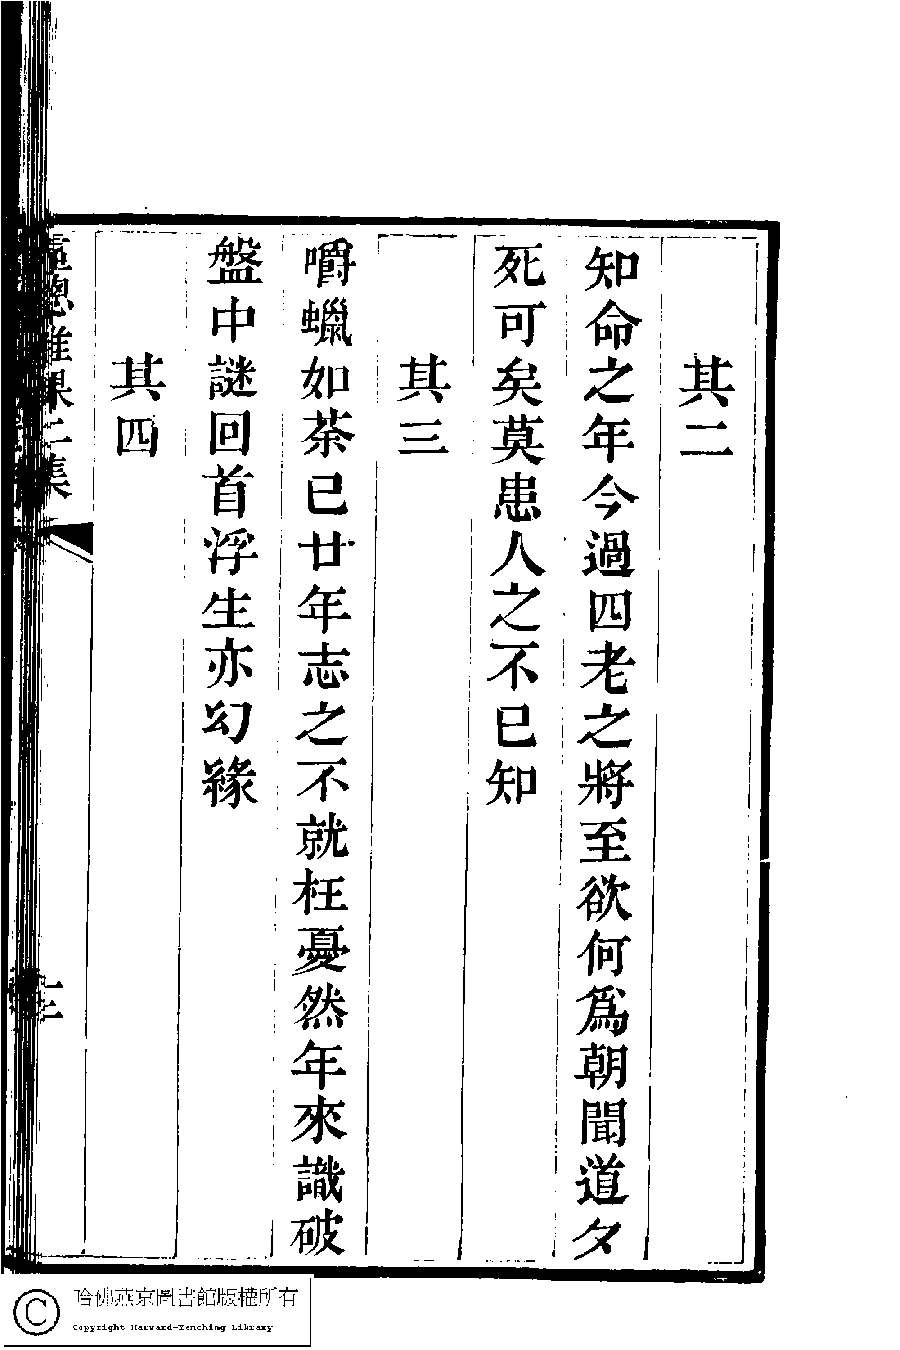 其二
知命之年今過四老之將至欲何爲朝聞道夕
死可矣莫患人之不已知
其三
嚼蠟如荼已廿年志之不就枉憂然年來識破
盤中謎回首浮生亦幻緣
其四
二集
哈佛燕京圖書館版權所有
Copyright Harvard-Yenching Library